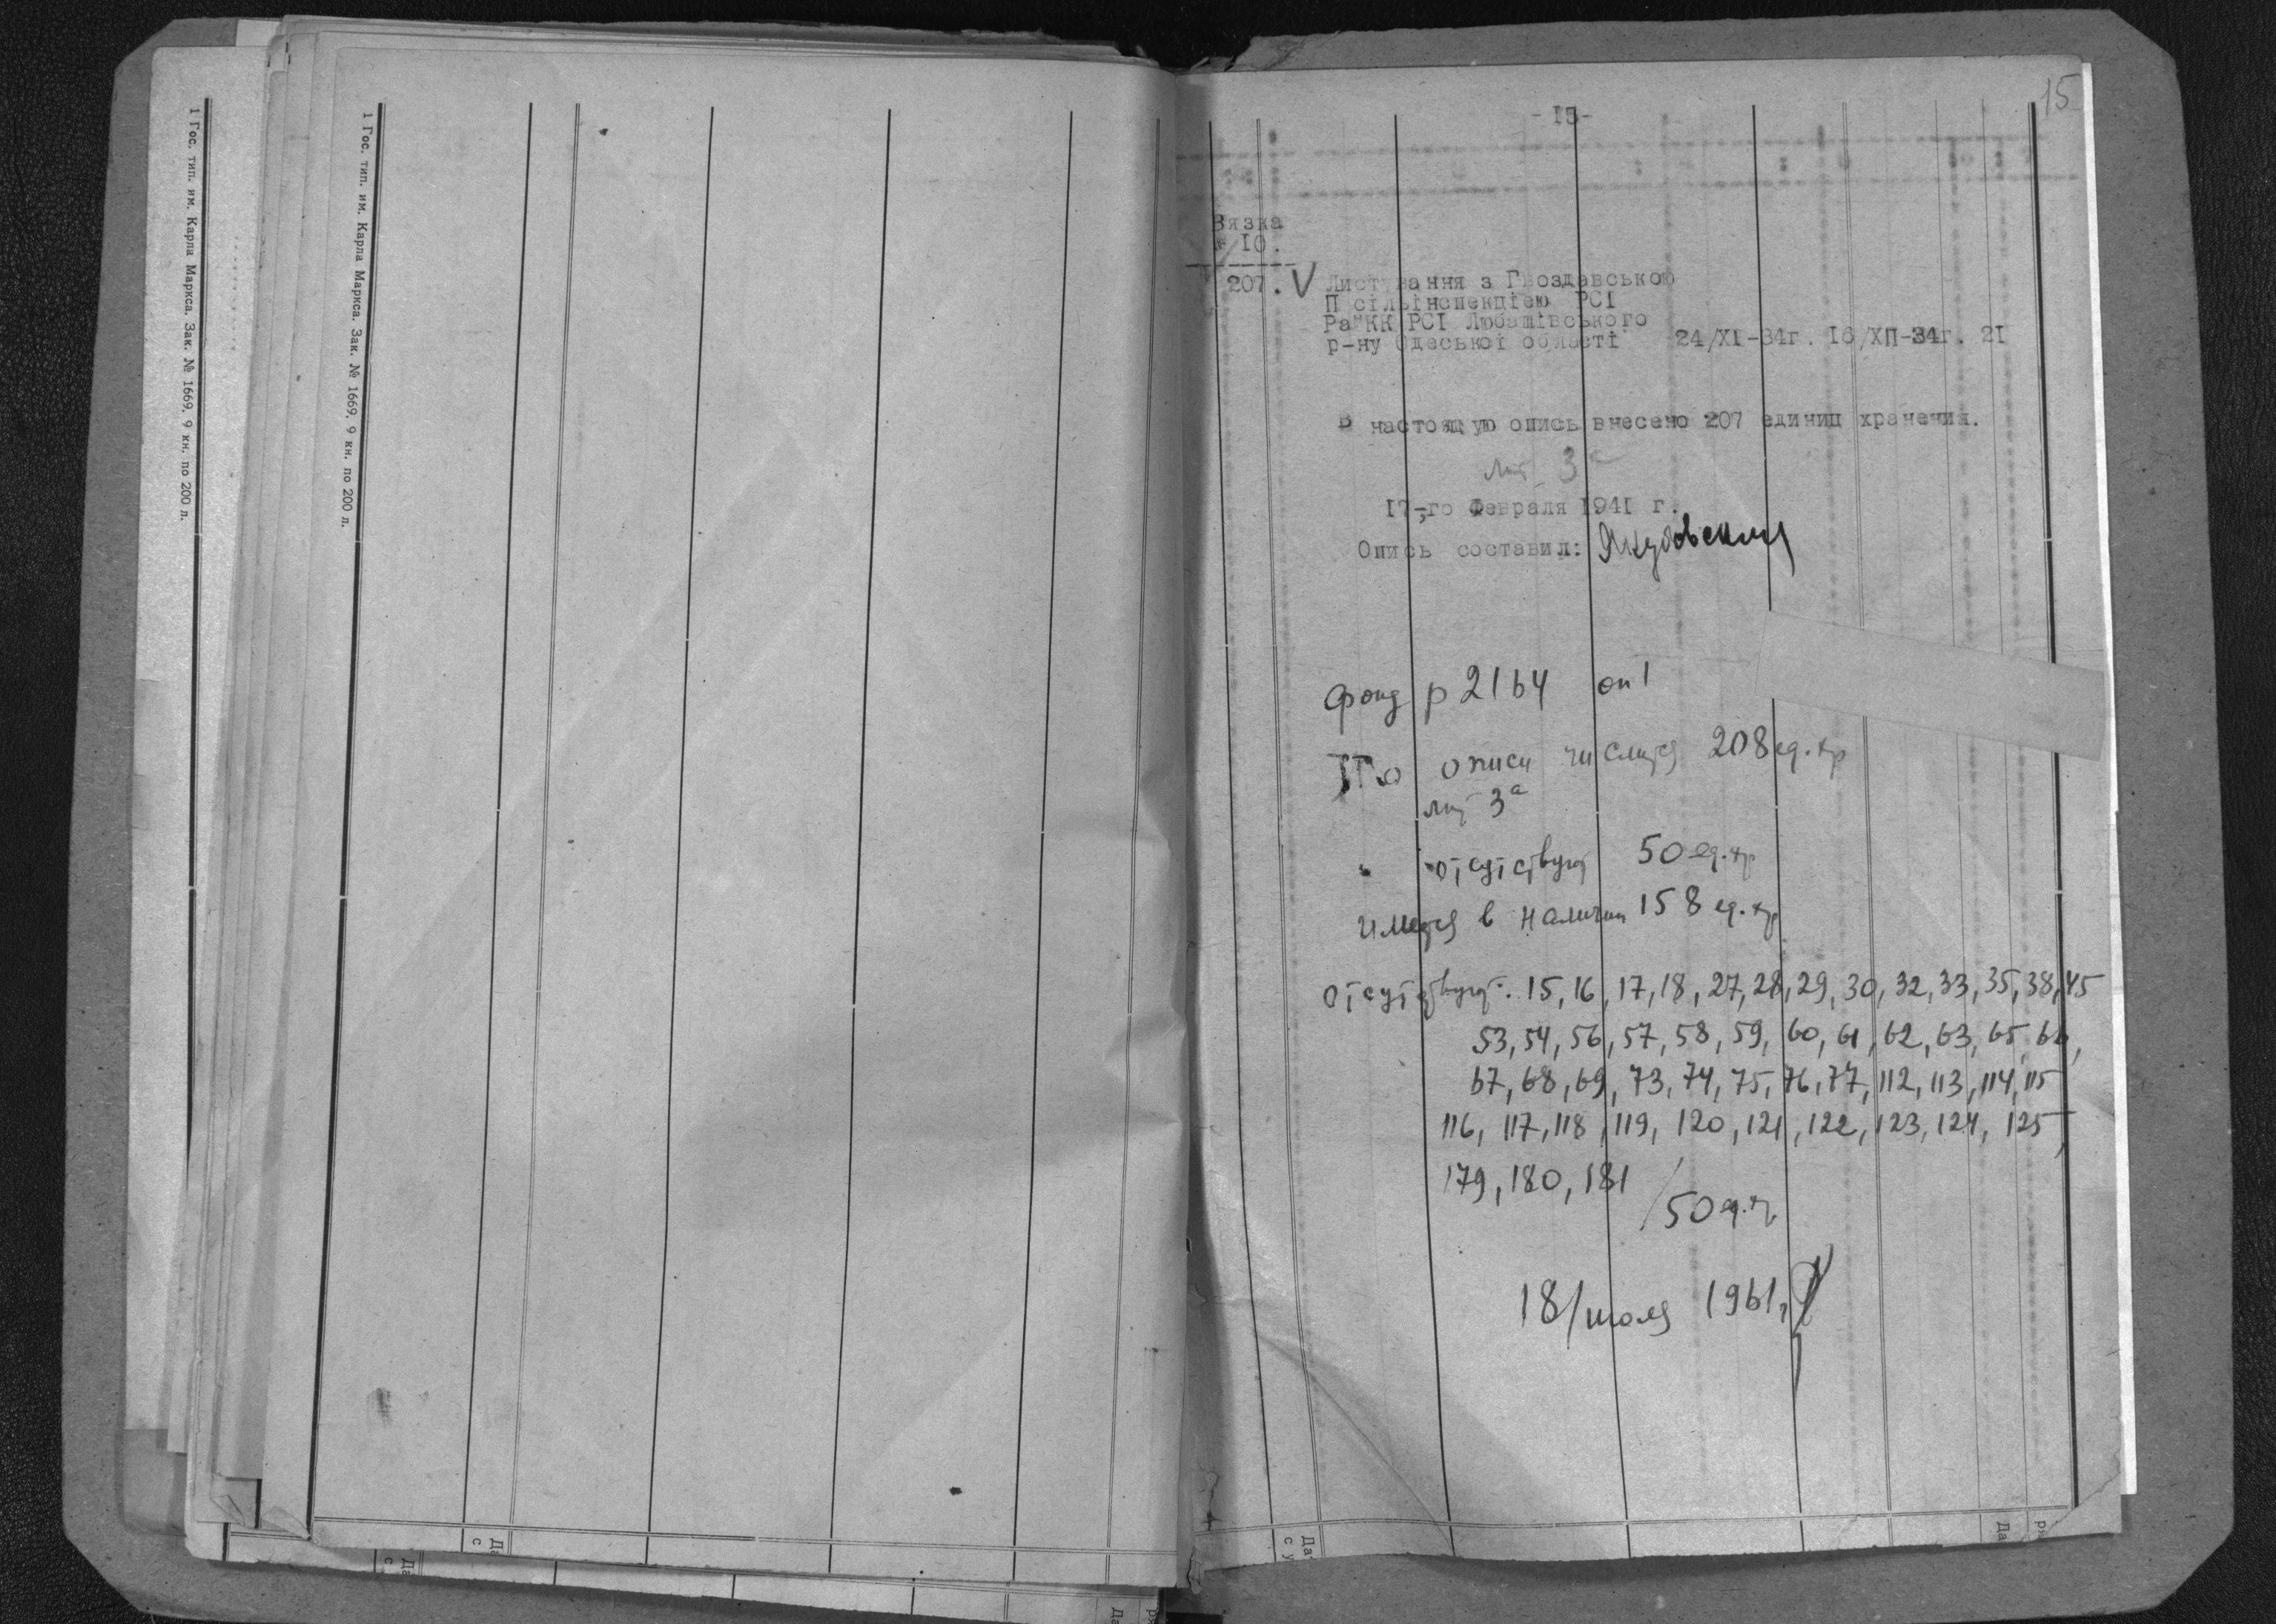 1 Гос. тип. им. Карла Маркса. Зак. № 1669. 9 кн. по 200 л.
1 Гос. тип. им. Карла Маркса. Зак. № 1669. 9 кн. по 200 л.
15
-15-
Вязка
№ 10.
207. V Листування з Гвоздавською
Пісільінспекцією РСІ
РайКК РСІ Любашівського
р-ну Одеської області 24/XI-34г. 16/XП-34г. 21
В настоящую опись внесено 207 единиц хранения.
лит 3а
17-го Февраля 1941 г.
Опись составил: Якубовский
фонд р 2164 оп 1
По описи числится 208 ед. хр
лит 3а
" отсутствуют 50 ед. хр
имеется в наличии 158 ед. хр
отсутствуют: 15, 16, 17, 18, 27, 28, 29, 30, 32, 33, 35, 38, 45
53, 54, 56, 57, 58, 59, 60, 61, 62, 63, 65, 66,
67, 68, 69, 73, 74, 75, 76, 77, 112, 113, 114, 115
116, 117, 118, 119, 120, 121, 122, 123, 124, 125,
179, 180, 181
/50 ед. х.
18/июля 1961 г
Да
с
Да
с
Да
с у
Да
ря
Да
ря